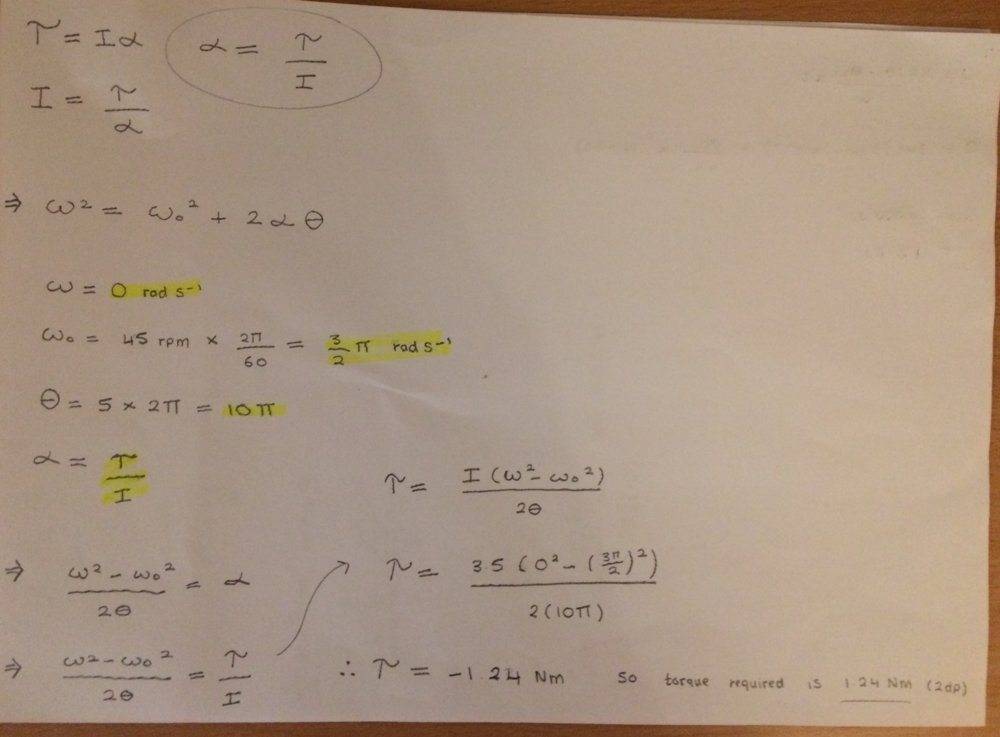 τ = Iα
α = τ/I
I = τ/α
⇒ ω² = ω₀² + 2αθ
ω = 0 rad s⁻¹
ω₀ = 45 rpm × 2π/60 = 3/2 π rad s⁻¹
θ = 5 × 2π = 10π
α = τ/I
⇒ (ω² - ω₀²)/2θ = α
⇒ (ω² - ω₀²)/2θ = τ/I
τ = I(ω² - ω₀²)/2θ
τ = 3.5(0² - (3π/2)²)/2(10π)
∴ τ = -1.24 Nm So torque required is 1.24 Nm (2dp)